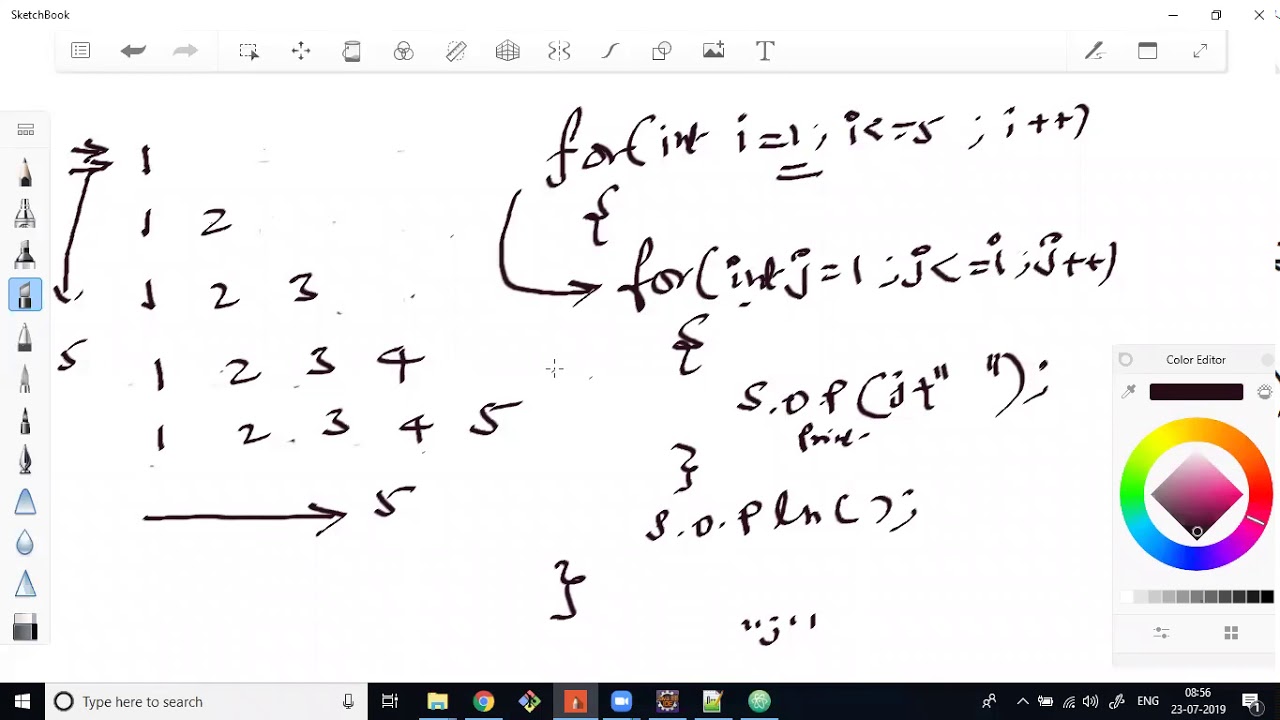 SketchBook
1
1 2
1 2 3
5 1 2 3 4
1 2 3 4 5
5
for(int i=1; i<=5 ; i++)
{
for(int j=1 ; j<=i ; j++)
{
S.O.P(j+" ");
Print
}
S.O.Pln();
}
"j"
Color Editor
Type here to search
ENG
08:56
23-07-2019
1